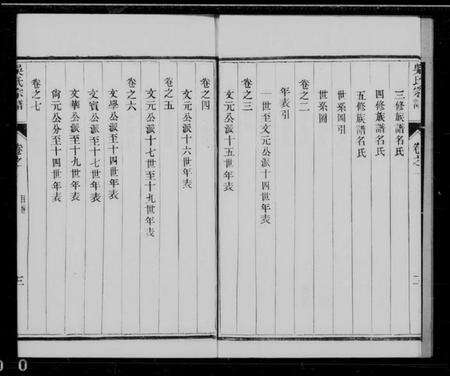 吳氏宗譜
卷之一
二
三修族譜名氏
四修族譜名氏
五修族譜名氏
世系圖引
世系圖
卷之二
年表引
一世至文元公派十四世年表
卷之三
文元公派十五世年表
卷之四
文元公派十六世年表
卷之五
文元公派十七世至十九世年表
卷之六
文學公派至十四世年表
文賓公派至十七世年表
文華公派至十九世年表
尙元公分至十四世年表
卷之七
吳氏宗譜
卷之一
三